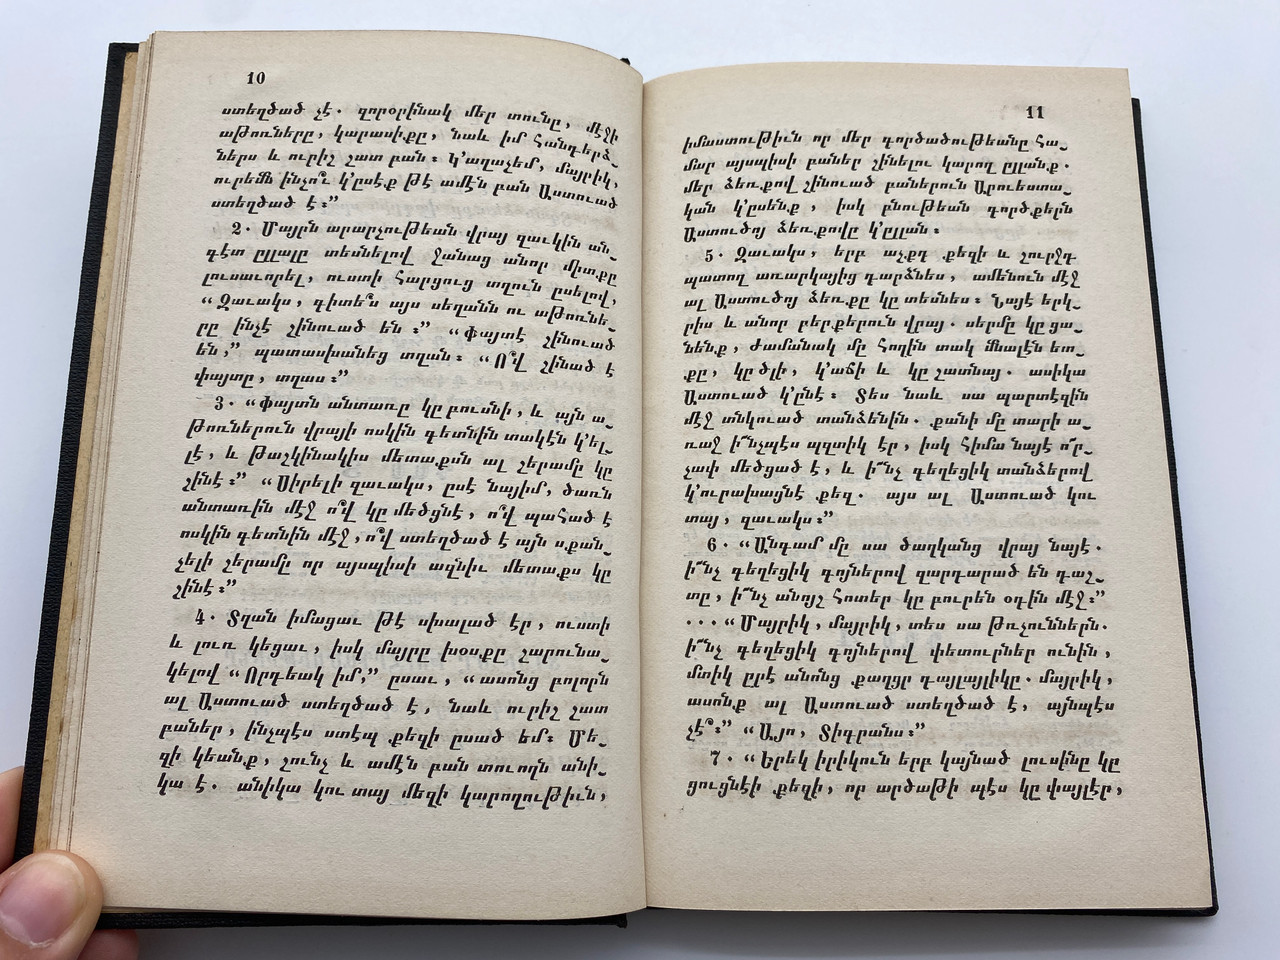 10
ստեղծած չէ. զորօրինակ մեր տունը, մէջի
աթոռները, կարասիքը, նաև իմ հանդերձ֊
ներս և ուրիշ շատ բան։ Կ՚աղաչեմ, մայրիկ,
ուրեմն ինչո՞ւ կ՚ըսէք թէ ամէն բան Աստուած
ստեղծած է։”
2. Մայրն արարչութեան վրայ զաւկին ան֊
գէտ ըլլալը տեսնելով ջանաց անոր միտքը
լուսաւորել, ուստի հարցուց տղուն ըսելով,
“Զաւակս, գիտե՞ս այս սեղանն ու աթոռնե֊
րը ինչէ շինուած են։” “Փայտէ շինուած
են,” պատասխանեց տղան։ “Ո՞վ շինած է
փայտը, տղաս։”
3. “Փայտն անտառը կը բուսնի, և այն ա֊
թոռներուն վրայի ոսկին գետնին տակէն կ՚ել֊
լէ, և թաշկինակիս մետաքսն ալ շերամը կը
շինէ։” “Սիրելի զաւակս, ըսէ նայիմ, ծառն
անտառին մէջ ո՞վ կը մեծցնէ, ո՞վ պահած է
ոսկին գետնին մէջ, ո՞վ ստեղծած է այն սքան֊
չելի շերամը որ այսպիսի ազնիւ մետաքս կը
շինէ։”
4. Տղան իմացաւ թէ սխալած էր, ուստի
և լուռ կեցաւ, իսկ մայրը խօսքը շարունա֊
կելով “Որդեակ իմ,” ըսաւ, “ասոնց բոլորն
ալ Աստուած ստեղծած է, նաև ուրիշ շատ
բաներ, ինչպէս ստէպ քեզի ըսած եմ։ Մե֊
զի կեանք, շունչ և ամէն բան տուողն անի֊
կա է. անիկա կու տայ մեզի կարողութիւն,
11
իմաստութիւն որ մեր գործածութեանը հա֊
մար այսպիսի բաներ շինելու կարող ըլլանք.
մեր ձեռքով շինուած բաներուն Արուեստա֊
կան կ՚ըսենք, իսկ բնութեան գործքերն
Աստուծոյ ձեռքովը կ՚ըլլան։
5. Զաւակս, երբ աչքդ քեզի և շուրջդ
պատող առարկայից դարձնես, ամենուն մէջ
ալ Աստուծոյ ձեռքը կը տեսնես։ Նայէ երկ֊
րիս և անոր բերքերուն վրայ. սերմը կը ցա֊
նենք, ժամանակ մը հողին տակ մնալէն ետ֊
քը, կը ծլի, կ՚աճի և կը շատնայ. ասիկա
Աստուած կ՚ընէ։ Տես նաև սա պարտէզին
մէջ տնկուած տանձենին. քանի մը տարի ա֊
ռաջ ի՞նչպէս պզտիկ էր, իսկ հիմա նայէ ո՞ր֊
չափ մեծցած է, և ի՞նչ գեղեցիկ տանձերով
կ՚ուրախացնէ քեզ. այս ալ Աստուած կու
տայ, զաւակս։”
6. “Անգամ մը սա ծաղկանց վրայ նայէ.
ի՞նչ գեղեցիկ գոյներով զարդարած են դաշ֊
տը, ի՞նչ անոյշ հոտեր կը բուրեն օդին մէջ։”
... “Մայրիկ, մայրիկ, տես սա թռչուններն.
ի՞նչ գեղեցիկ գոյներով փետուրներ ունին,
մտիկ ըրէ անոնց քաղցր դայլայլիկը. մայրիկ,
ասոնք ալ Աստուած ստեղծած է, այնպէս
չէ՞։” “Այո, Տիգրանս։”
7. “Երեկ իրիկուն երբ կայնած լուսինը կը
ցուցնէի քեզի, որ արծաթի պէս կը փայլէր,